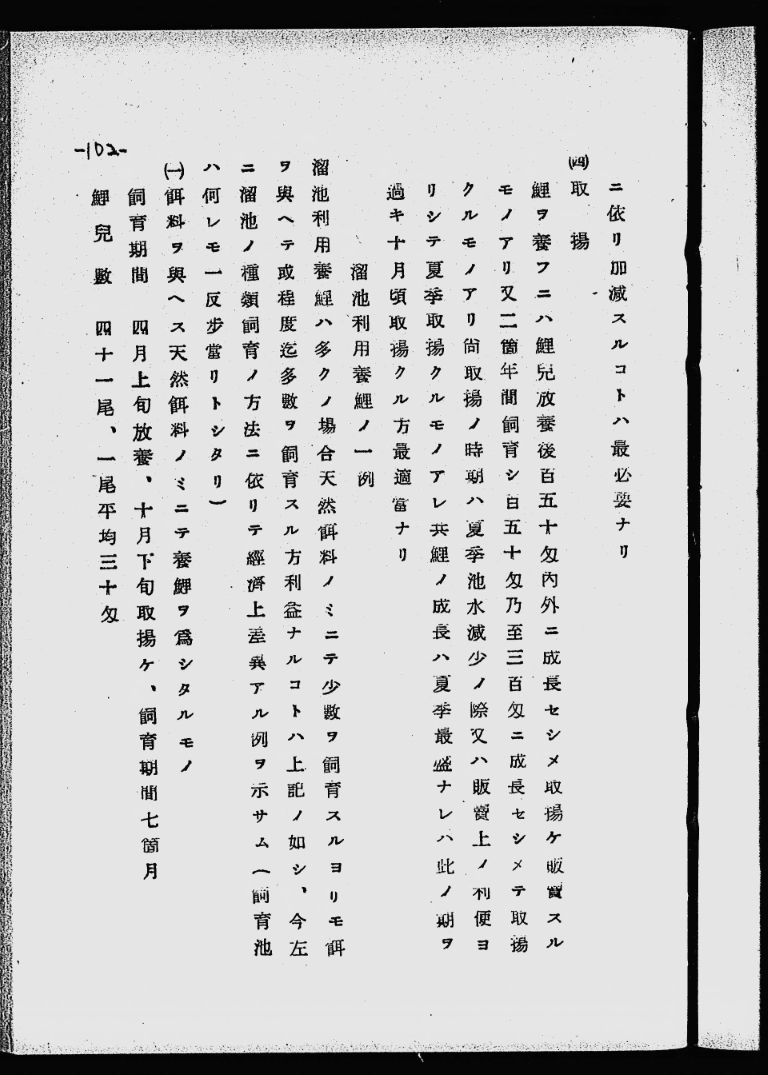 ニ依リ加減スルコトハ最必要ナリ
㈣取揚
鯉ヲ養フニハ鯉兒放養後百五十匁內外ニ成長セシメ取揚ケ販賣スル
モノアリ又二箇年間飼育シ百五十匁乃至三百匁ニ成長セシメテ取揚
クルモノアリ尙取揚ノ時期ハ夏季池水減少ノ際又ハ販賣上ノ利便ヨ
リシテ夏季取揚クルモノアレ共鯉ノ成長ハ夏季最盛ナレハ此ノ期ヲ
過キ十月頃取揚クル方最適當ナリ
溜池利用養鯉ノ一例
溜池利用養鯉ハ多クノ場合天然餌料ノミニテ少數ヲ飼育スルヨリモ餌
ヲ與ヘテ或程度迄多數ヲ飼育スル方利益ナルコトハ上記ノ如シ、今左
ニ溜池ノ種類飼育ノ方法ニ依リテ經濟上差異アル例ヲ示サム(飼育池
ハ何レモ一反步當リトシタリ)
㈠餌料ヲ與ヘス天然餌料ノミニテ養鯉ヲ爲シタルモノ
飼育期間 四月上旬放養、十月下旬取揚ケ、飼育期間七箇月
鯉兒數 四十一尾、一尾平均三十匁
-102-